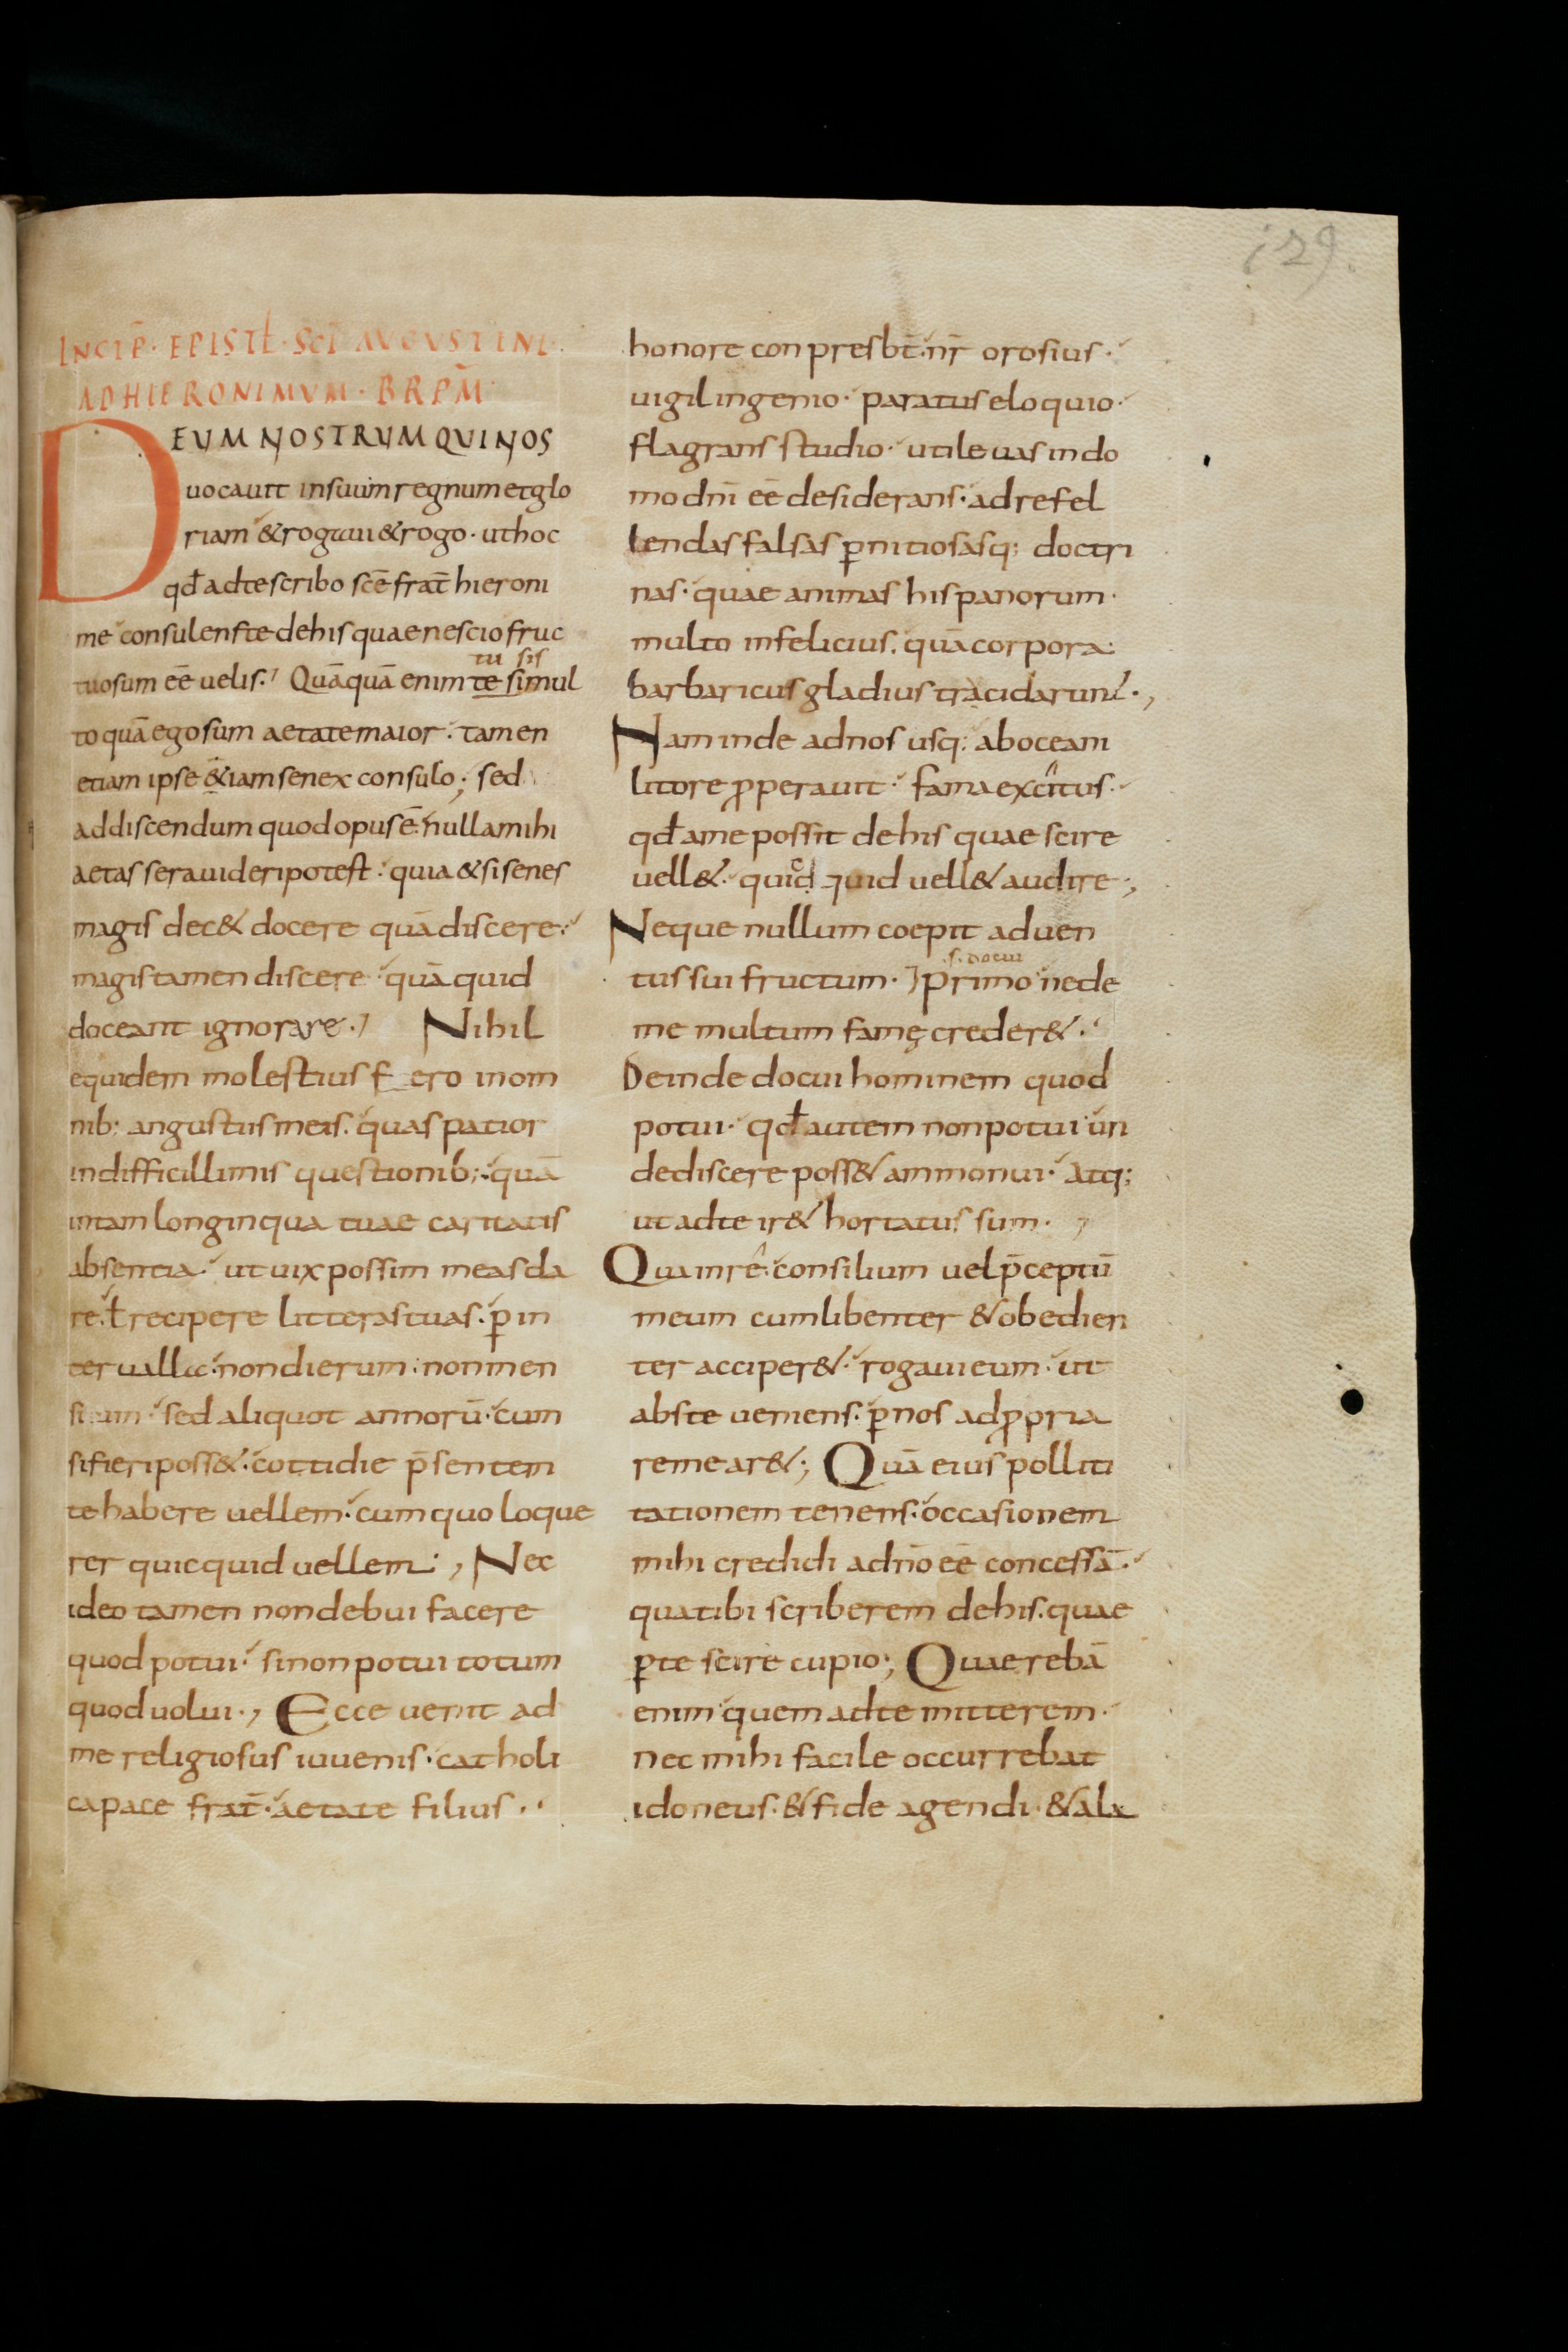 129.
INCIP̄ · EPISTꝉ · SCĪ AUGUSTINI ·
AD HIERONIMUM · PRBM̄
DEUM NOSTRUM QUI NOS
uocauit in suum regnum et glo
riam & rogaui & rogo · ut hoc
qđ ad te scribo scē frat̄ hieroni
me consulens te de his quae nescio fruc
tu sis
tuosum eē uelis. Quāquā enim te simul
to quā ego sum aetate maior · tamen
etiam ipse & iam senex consulo; sed
ad discendum quod opus ē · nulla mihi
aetas sera uideri potest · quia & si senes
magis dec& docere quā discere ·
magis tamen discere · quā quid
doceant ignorare. Nihil
equidem molestius fero in om
nib; angustiis meis · quas patior
in difficillimis questionib; · quā
in tam longinqua tuae caritatis
absentia · ut uix possim meas da
re · ꝉ recipere litteras tuas · ꝑ in
terualla · non dierum · non men
sium · sed aliquot annorū · cum
si fieri poss& · cottidie p̄sentem
te habere uellem · cum quo loque
rer quicquid uellem; Nec
ideo tamen non debui facere
quod potui · si non potui totum
quod uolui · , Ecce uenit ad
me religiosus iuuenis · catholi
ca pace frat̄ · aetate filius ·
honore conpresbt̄ · nr̄ orosius ·
uigil ingenio · paratus eloquio ·
flagrans studio · utile uas in do
mo dnī eē desiderans · ad refel
lendas falsas ꝑnitiosasq; doctri
nas · quae animas hispanorum ·
multo infelicius · quā corpora ·
barbaricus gladius tracidarunt · ,
Nam inde ad nos usq; ab oceani
litore ꝓperauit · fama excitus ·
qđ a me possit de his quae scire
uell& · quicquid uell& audire ;
Neque nullum coepit aduen
s. docui
tus sui fructum · Primo ne de
me multum famę creder& ·
Deinde docui hominem quod
potui · qđ autem non potui un
de discere poss& ammonui · Atq;
ut ad te ir& hortatus sum · ,
Qua in re · consilium uel p̄ceptū
meum cum libenter & obedien
ter acciper& · rogaui eum · ut
abs te ueniens · ꝑ nos ad ꝓpria
remear&; Quā eius polliti
tationem tenens · occasionem
mihi credidi a dnō eē concessā ·
qua tibi scriberem de his · quae
ꝑ te scire cupio; Quaerebā
enim quem ad te mitterem ·
nec mihi facile occurrebat
idoneus · & fide agendi · & ala